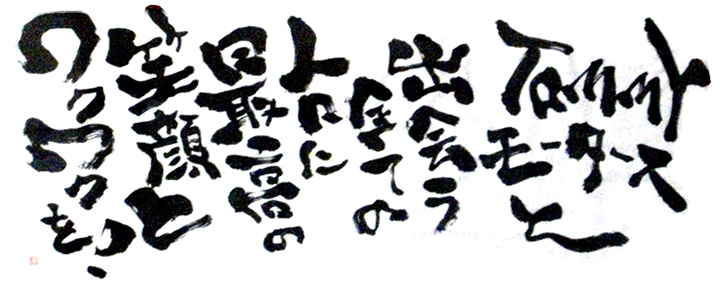 モータースと
出会う
全ての
人に
最高の
笑顔と
ワクワクを!